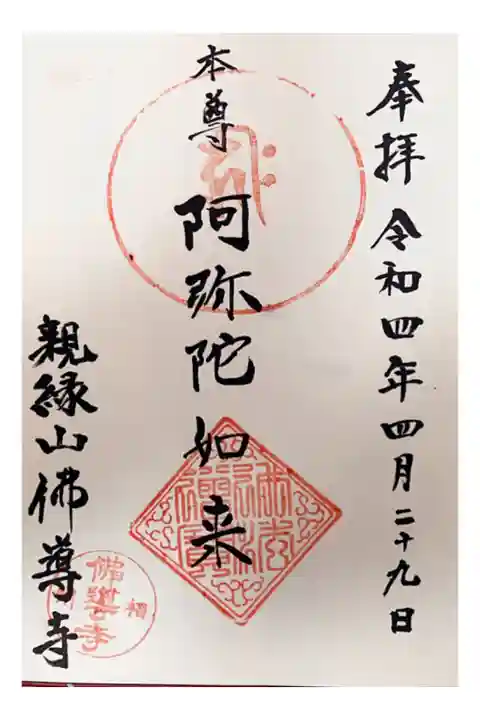 奉拝 令和四年四月二十九日
本尊 阿弥陀如来
親縁山佛尊寺